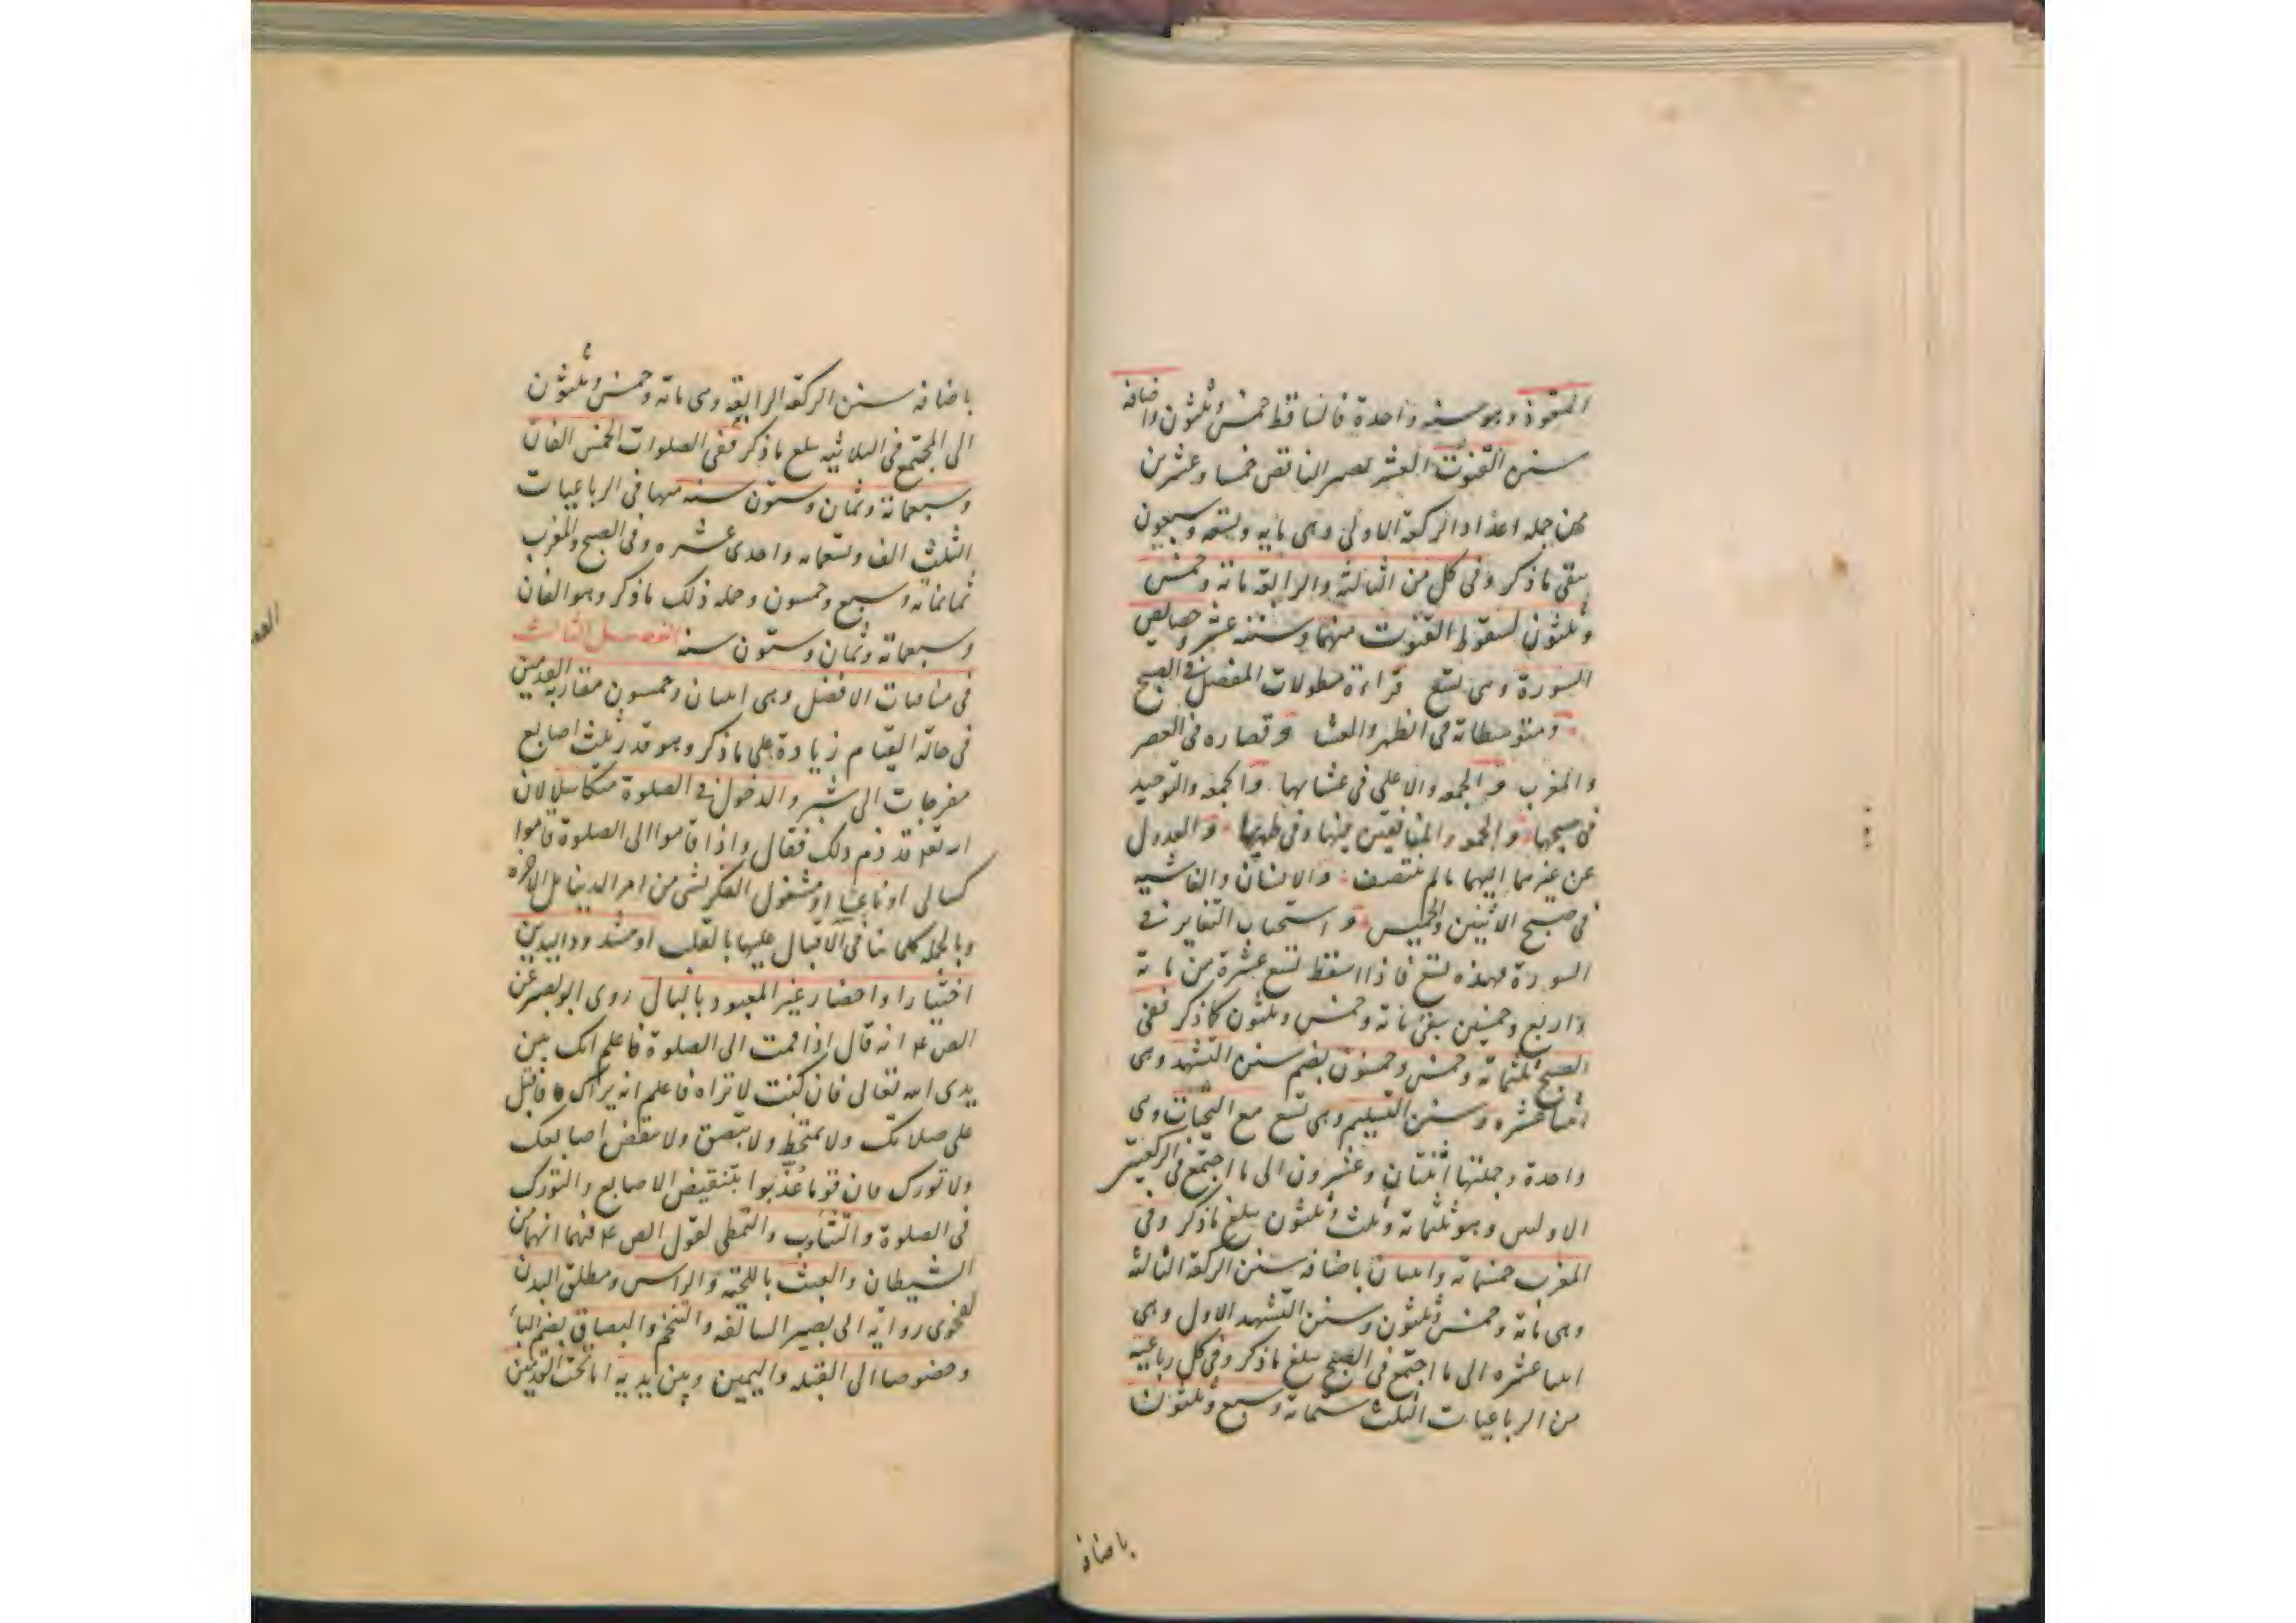 التعوذ وهو سنة واحدة فالساقط خمس وثلثون واضافة
سنن القنوت العشر تصير الناقص خمسا وعشرين
فمن جمله اعداد الركعة الاولى وهى مايه وتسعه وسبعون
يبقى ما ذكر وفى كل من الثالثة والرابعة مائة وخمس
وثلثون لسقوط القنوت منهما وسننه عشر وخصايص
السورة وهى تسع قراءة مطولات المفصل فى الصبح
ومتوسطاته فى الظهر والعشا وقصاره فى العصر
والمغرب والجمعه والاعلى فى عشائها والجمعه والتوحيد
فى صبحها والجمعه والمنافقين فيها وفى ظهرها والعدول
عن غيرهما اليهما ما لم ينتصف والانسان والغاشيه
فى صبح الاثنين والخميس و استحباب التغاير فى
السورة فهذه تسع فاذا اسقط تسع عشرة من مائة
واربع وخمسين بقى مائة وخمس وثلثون كما ذكر ففى
الصبح ثلثمائة وخمس وخمسون بضم سنن التشهد وهى
اثنتا عشره وسنن التسليم وهى تسع مع التحيات وهى
واحدة وجملتها اثنتان وعشرون الى ما اجتمع فى الركعتين
الاوليين وهو ثلثمائة وثلث وثلثون يبلغ ما ذكر وفى
المغرب خمسمائة واثنتان باضافه سنن الركعة الثالثة
وهى مائة وخمس وثلثون وسنن التشهد الاول وهى
اثنتا عشره الى ما اجتمع فى الصبح يبلغ ما ذكر وفى كل رباعيه
من الرباعيات الثلث ستمائة وسبع وثلثون
باضافة
باضافه سنن الركعة الرابعة وهى مائة وخمس وثلثون
الى المجتمع فى الثلاثيه يبلغ ما ذكر ففى الصلوات الخمس الفان
وسبعمائة وثمان وستون سنه منها فى الرباعيات
الثلث الف وتسعمائه واحدى عشره وفى الصبح والمغرب
ثمانمائه وسبع وخمسون وجمله ذلك ما ذكر وهو الفان
وسبعمائة وثمان وستون سنه الفصل الثالث
فى منافيات الافضل وهى اثنتان وخمسون مقاربه القدمين
فى حالة القيام زيادة على ما ذكر وهو قدر ثلث اصابع
مفرجات الى شبر والدخول فى الصلوة متكاسلا لان
الله تعه قد ذم ذلك فقال واذا قاموا الى الصلوة قاموا
كسالى او ناعسا او مشغول الفكر بشى من امر الدينا بل الاخره
وبالجمله كلما ينافى الاقبال عليها بالقلب او مشدود اليدين
اختيارا واحضار غير المعبود بالبال روى ابو بصير عن
الص ع انه قال اذا قمت الى الصلوة فاعلم انك بين
يدى الله تعالى فان كنت لا تراه فاعلم انه يراك فاقبل
على صلاتك ولا تمتخط ولا تبصق ولا تنقض اصابعك
ولا تورك فان قوما عُذّبوا بتنقيض الاصابع والتورك
فى الصلوة والتثاوب والتمطى لقول الص ع فيهما انهما من
الشيطان والعبث باللحية والراس ومطلق البدن
لفحوى رواية ابى بصير السالفه والتنخم والبصاق بضم الباء
وخصوصا الى القبله واليمين وبين يديه اما تحت القدمين